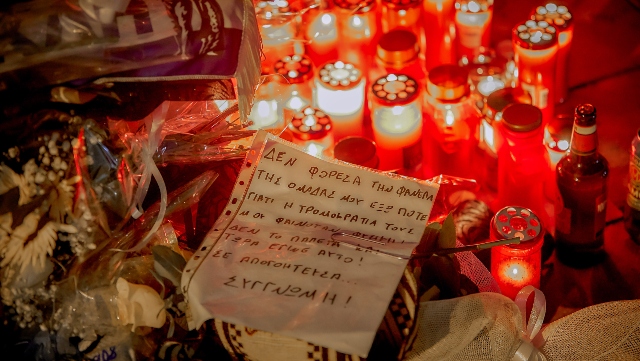 ΔΕΝ ΦΟΡΕΣΑ ΤΗΝ ΦΑΝΕΛΑ
ΤΗΣ ΟΜΑΔΑΣ ΜΟΥ ΕΞΩ ΠΟΤΕ
ΓΙΑΤΙ Η ΤΡΟΜΟΚΡΑΤΙΑ ΤΟΥΣ
ΜΟΥ ΦΑΙΝΟΤΑΝ
ΔΕΝ ΤΟ
ΤΩΡΑ ΕΓΙΝΕ ΑΥΤΟ!
ΣΕ ΑΠΟΓΟΗΤΕΥΣΑ...
ΣΥΓΓΝΩΜΗ!